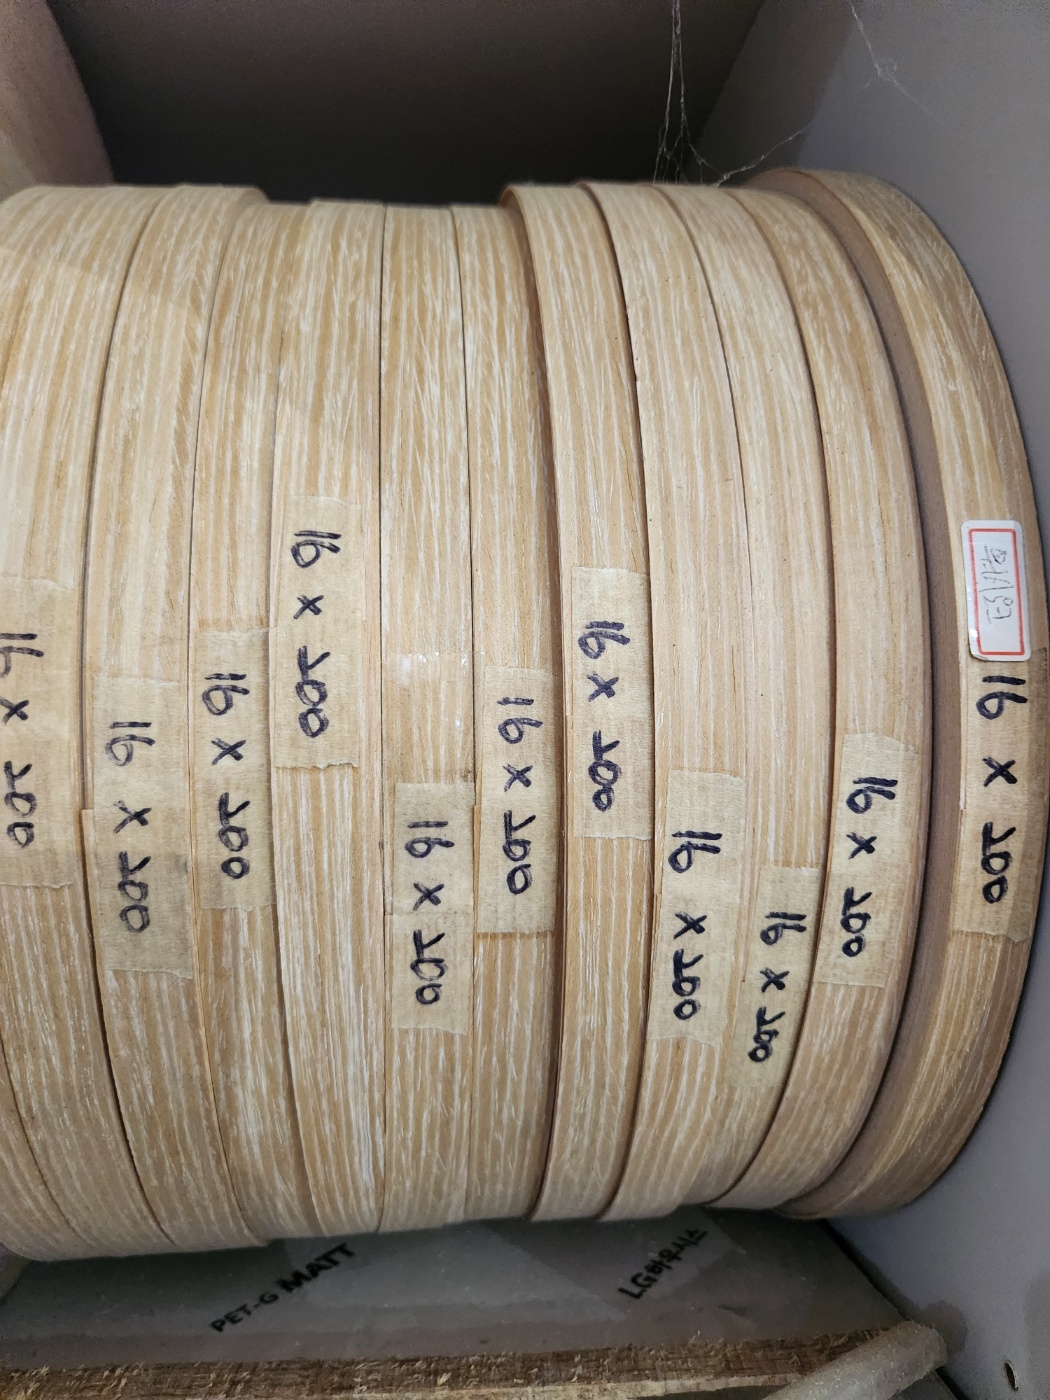 16 x 200
16 x 200
16 x 200
16 x 200
16 x 200
16 x 200
16 x 200
16 x 200
16 x 200
16 x 200
16 x 200
PET-G MATT
LG하우시스